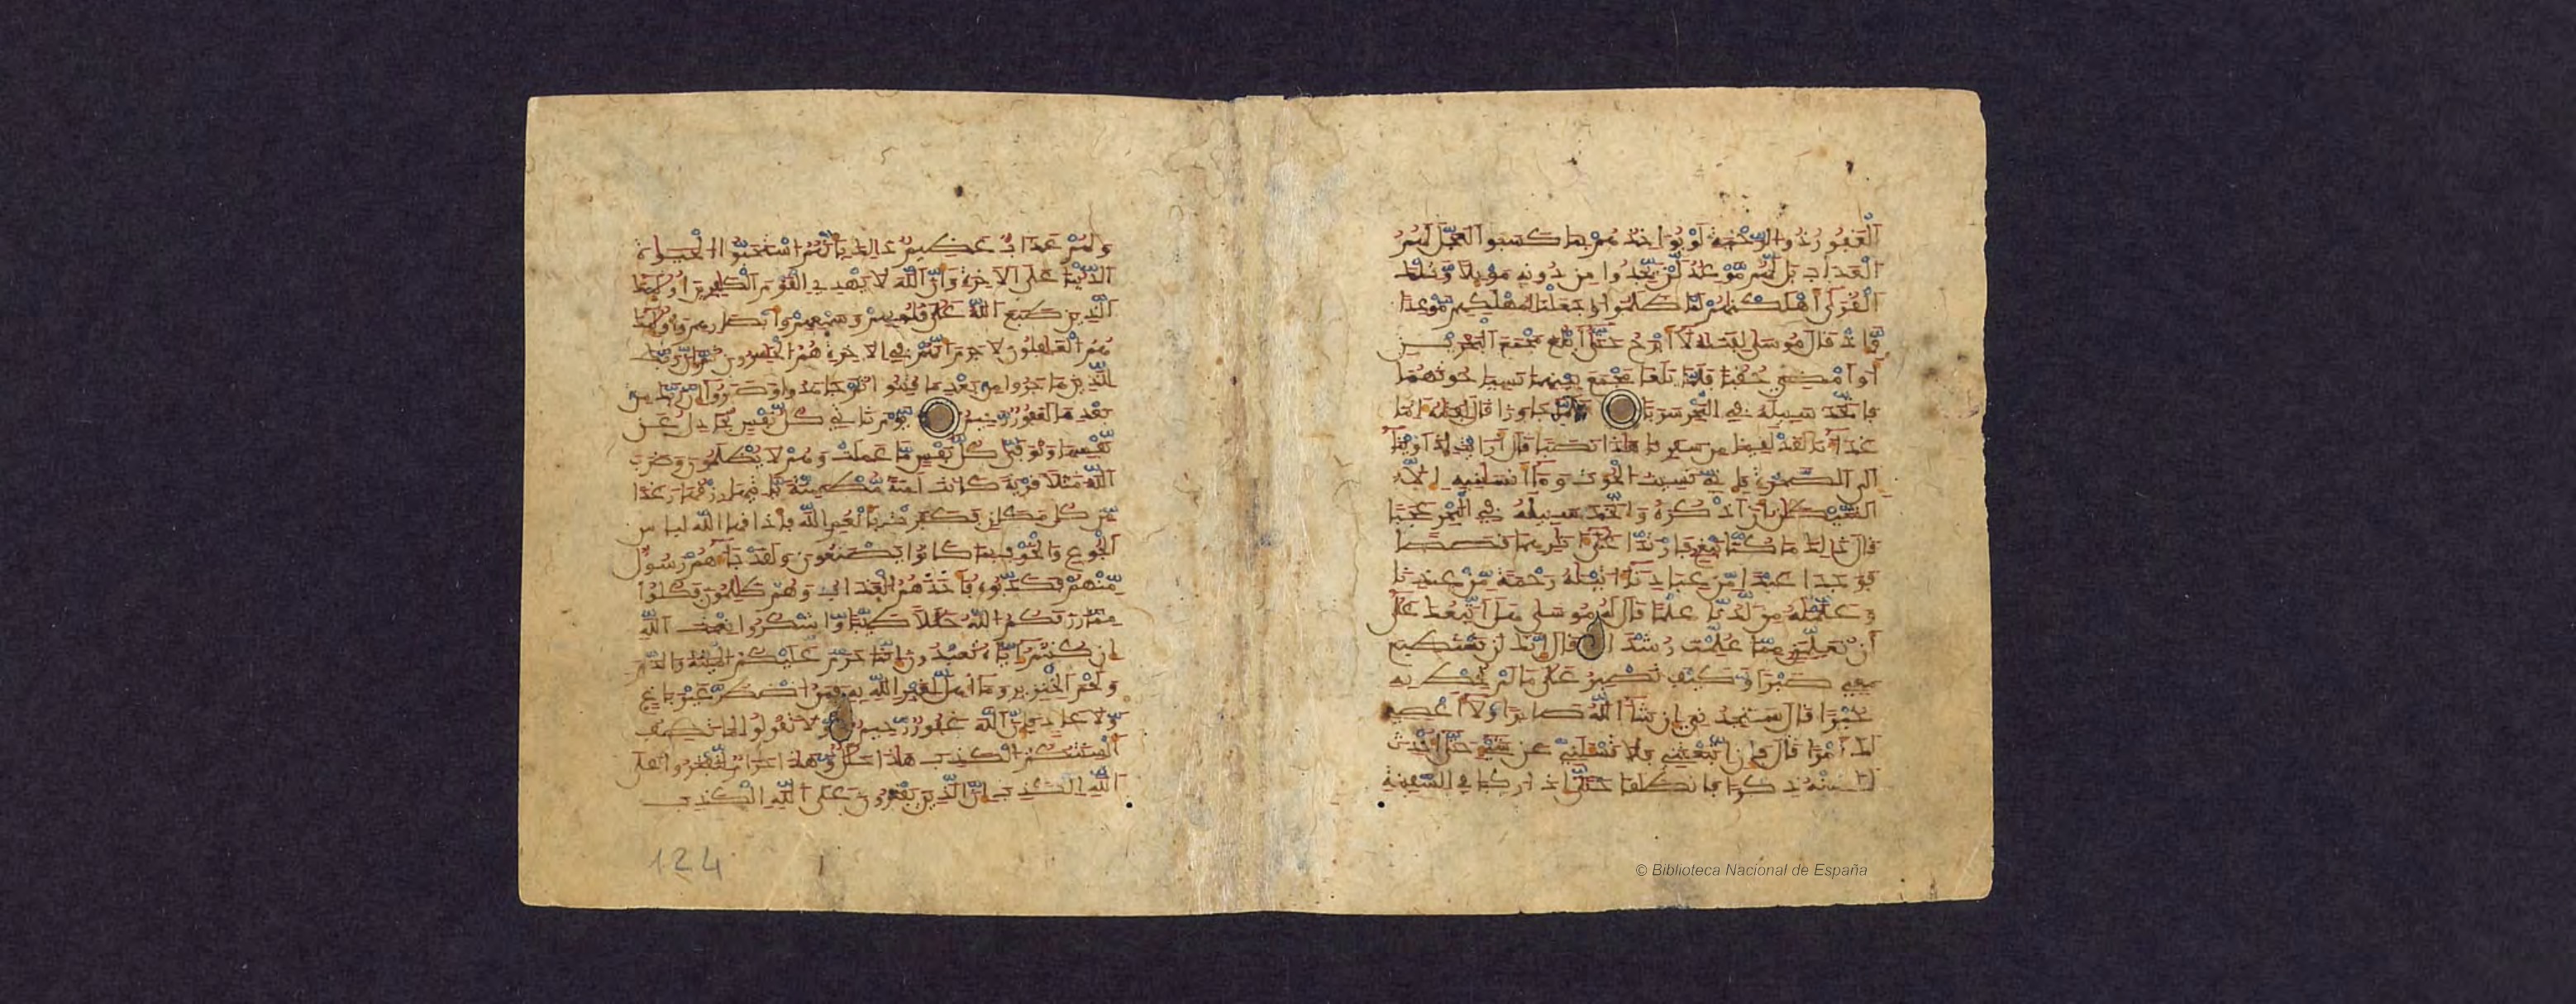 الغفور ذو الرحمة لو يؤاخذهم بما كسبوا لعجل لهم
العذاب بل لهم موعد لن يجدوا من دونه موئلا وتلك
القرى أهلكنهم لما ظلموا وجعلنا لمهلكهم موعدا
وإذ قال موسى لفتيه لا أبرح حتى أبلغ مجمع البحرين
أو أمضي حقبا فلما بلغا مجمع بينهما نسيا حوتهما
فاتخذ سبيله في البحر سربا فلما جاوزا قال لفتيه اتنا
غداءنا لقد لقينا من سفرنا هذا نصبا قال أرأيت إذ أوينا
إلى الصخرة فإني نسيت الحوت وما أنسنيه إلا
الشيطن أن أذكره واتخذ سبيله في البحر عجبا
قال ذلك ما كنا نبغ فارتدا على اثارهما قصصا
فوجدا عبدا من عبادنا اتينه رحمة من عندنا
وعلمنه من لدنا علما قال له موسى هل أتبعك على
أن تعلمني مما علمت رشدا قال إنك لن تستطيع
معي صبرا وكيف تصبر على ما لم تحط به
خبرا قال ستجدني إن شاء الله صابرا ولا أعصي
لك أمرا قال فإن اتبعتني فلا تسئلني عن شيء حتى أحدث
لك منه ذكرا فانطلقا حتى إذا ركبا في السفينة
ولهم عذاب عظيم ذلك بأنهم استحبوا الحيوة
الدنيا على الاخرة وأن الله لا يهدي القوم الكفرين أولئك
الذين طبع الله على قلوبهم وسمعهم وأبصرهم وأولئك
هم الغفلون لا جرم أنهم في الاخرة هم الخسرون ثم إن ربك
للذين هاجروا من بعد ما فتنوا ثم جاهدوا وصبروا إن ربك من
بعدها لغفور رحيم يوم تأتي كل نفس تجادل عن
نفسها وتوفى كل نفس ما عملت وهم لا يظلمون وضرب
الله مثلا قرية كانت امنة مطمئنة يأتيها رزقها رغدا
من كل مكان فكفرت بأنعم الله فأذاقها الله لباس
الجوع والخوف بما كانوا يصنعون ولقد جاءهم رسول
منهم فكذبوه فأخذهم العذاب وهم ظلمون فكلوا
مما رزقكم الله حللا طيبا واشكروا نعمت الله
إن كنتم إياه تعبدون إنما حرم عليكم الميتة والدم
ولحم الخنزير وما أهل لغير الله به فمن اضطر غير باغ
ولا عاد فإن الله غفور رحيم ولا تقولوا لما تصف
ألسنتكم الكذب هذا حلل وهذا حرام لتفتروا على
الله الكذب إن الذين يفترون على الله الكذب
124
© Biblioteca Nacional de España